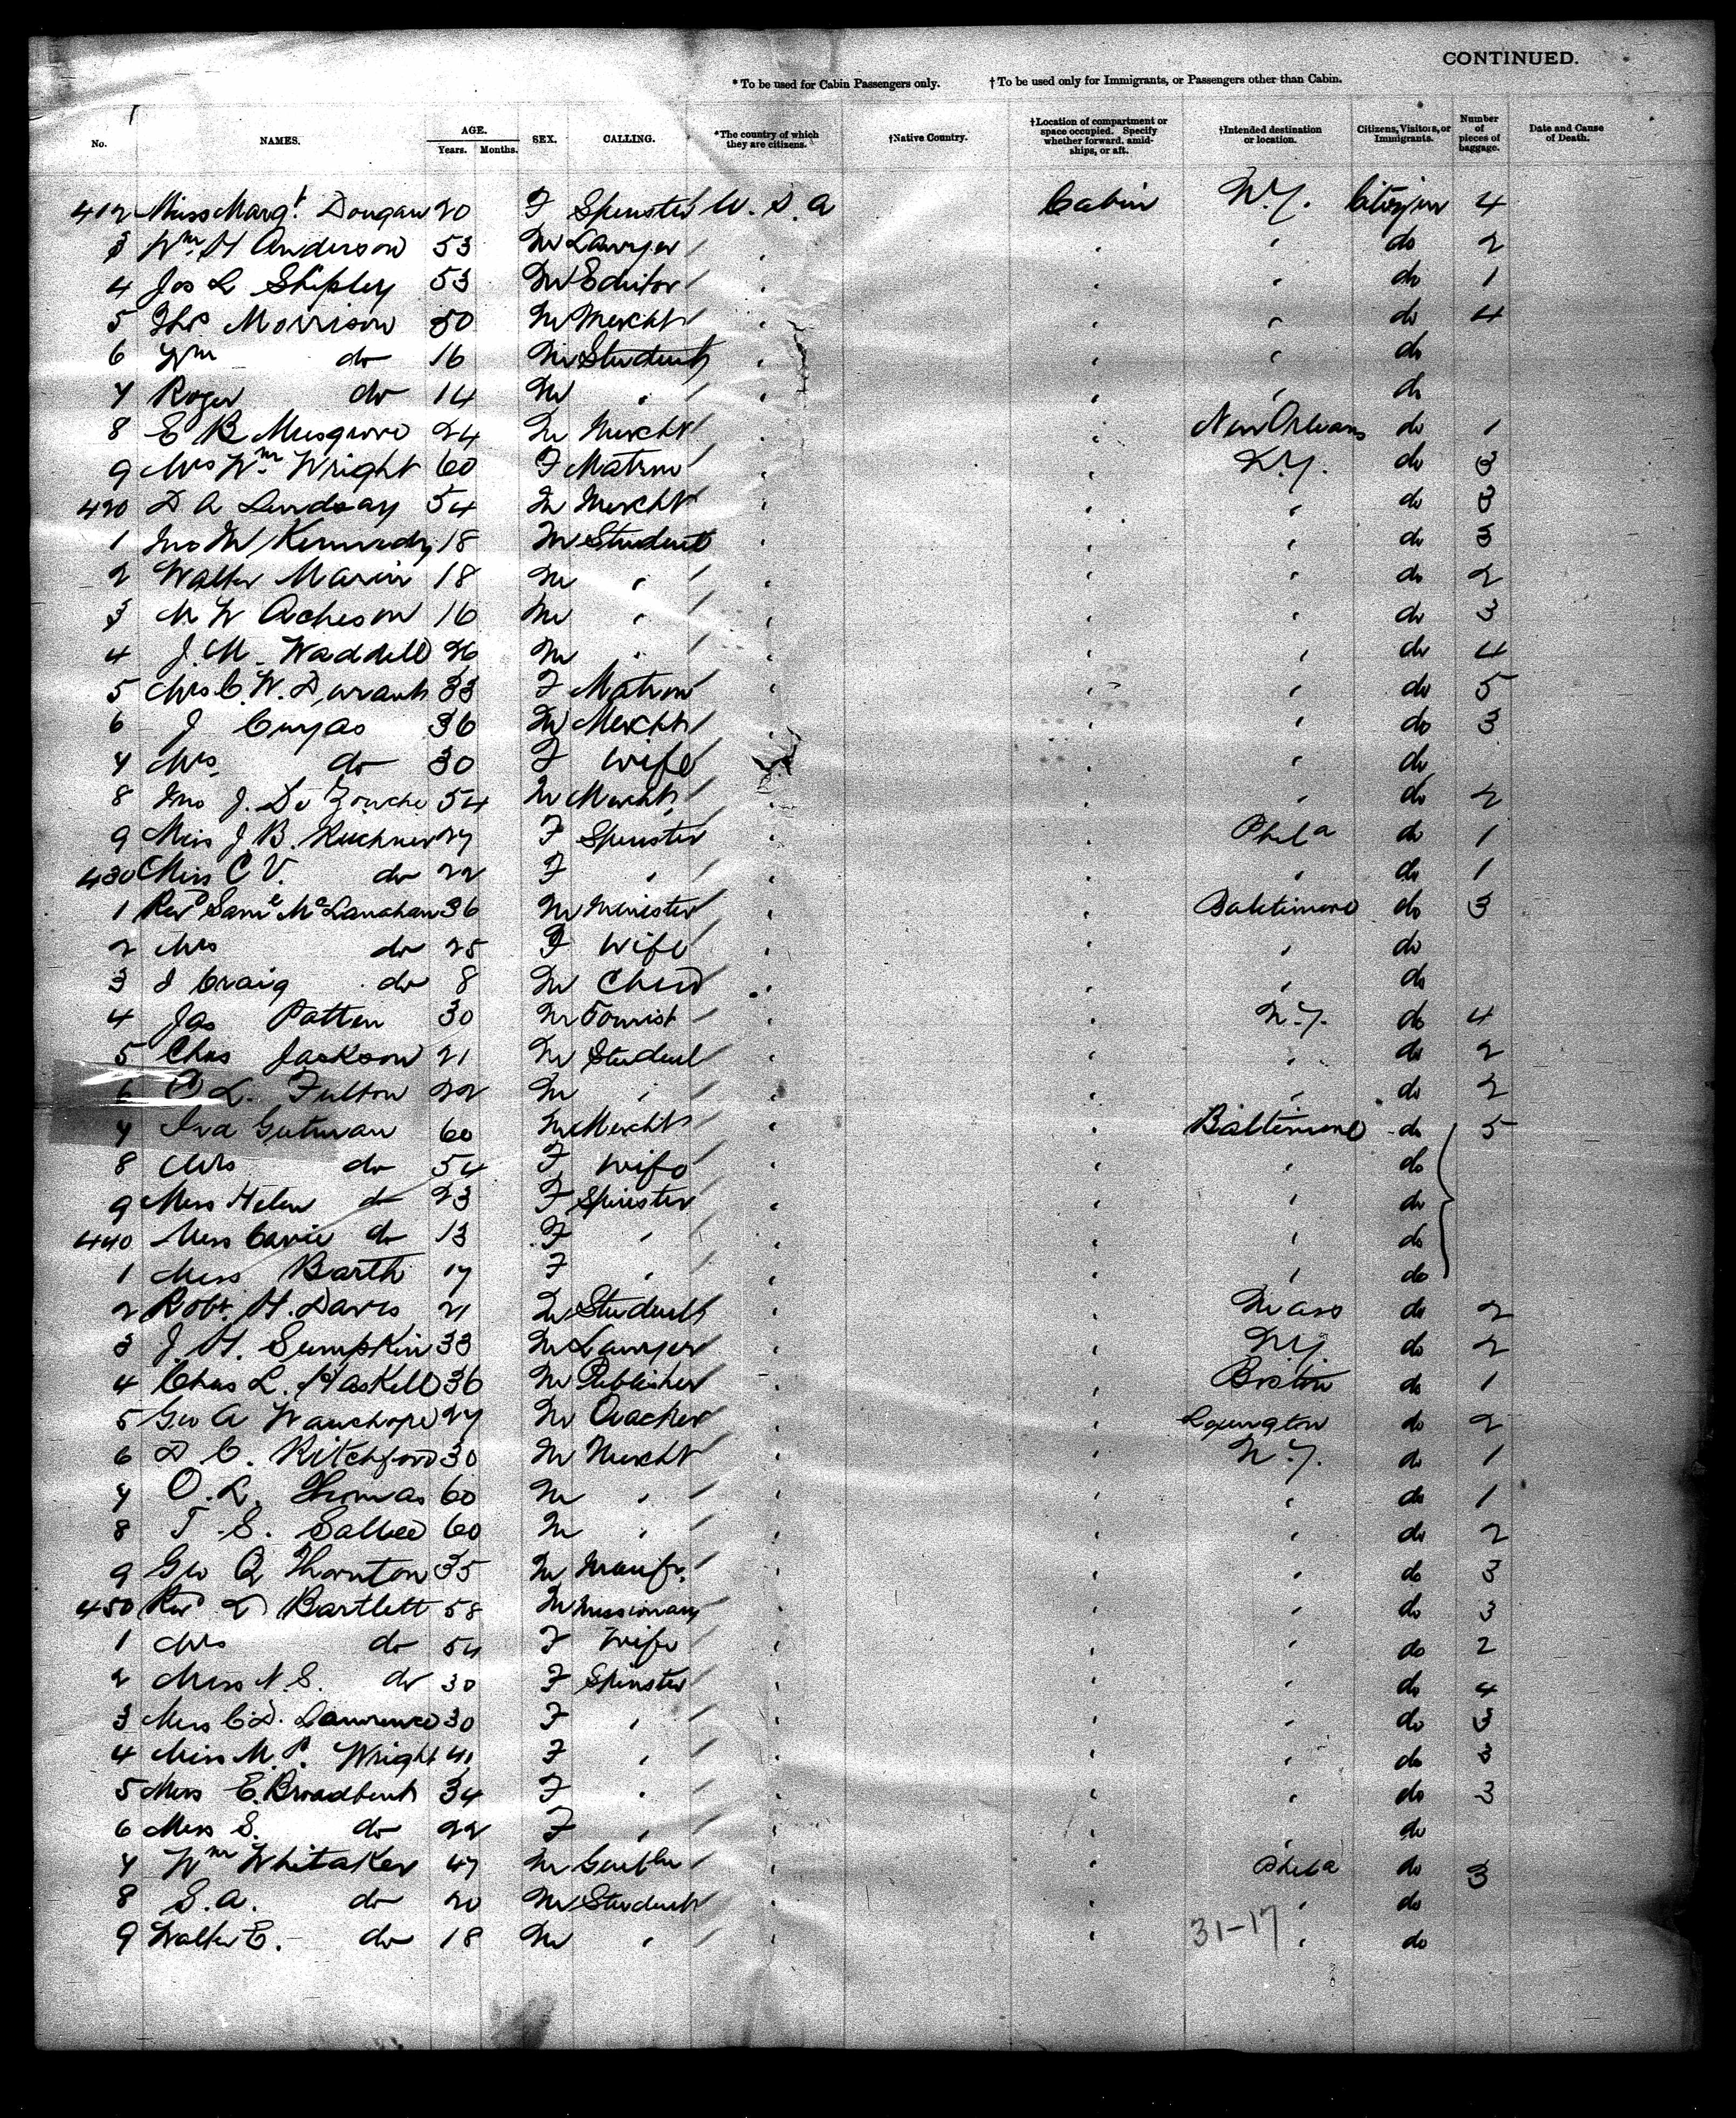 CONTINUED.
* To be used for Cabin Passengers only. † To be used only for Immigrants, or Passengers other than Cabin.
No. NAMES. AGE. Years. Months. SEX. CALLING. *The country of which they are citizens. †Native Country. †Location of compartment or space occupied. Specify whether forward, amidships, or aft. †Intended destination or location. Citizens, Visitors, or Immigrants. Number of pieces of baggage. Date and Cause of Death.
412 Miss Margt Dougan 20 F Spinster U.S.A Cabin N.Y. Citizen 4
3 Wm H Anderson 53 M Lawyer do 2
4 Jos L Shipley 53 M Editor do 1
5 Ths Morrison 50 M Mercht do 4
6 Wm do 16 M Student do
7 Roger do 14 M do
8 E B Musgrove 24 M Mercht New Orleans do 1
9 Mrs Wm Wright 60 F Matron N.Y. do 3
420 D A Lindsay 54 M Mercht do 3
1 Jno M Kennedy 18 M Student do 3
2 Walter Marin 18 M do 2
3 M W Acheson 16 M do 3
4 J. M. Waddell 26 M do 4
5 Mrs C. W. Durant 33 F Matron do 5
6 J Cuyas 36 M Mercht do 3
7 Mrs do 30 F Wife do
8 Jno J. De Zouche 54 M Mercht do 2
9 Miss J. B. 27 F Spinster Phila do 1
430 Miss C V. do 22 F do 1
1 Revd Saml McLanahan 36 M Minister Baltimore do 3
2 Mrs do 25 F Wife do
3 J Craig do 8 M Child do
4 Jas Patten 30 M Tourist N.Y. do 4
5 Chas Jackson 21 M Student do 2
6 C L. Fulton 22 M do 2
7 Ira Gutman 60 M Mercht Baltimore do 5
8 Mrs do 54 F Wife do
9 Miss Helen do 23 F Spinster do
440 Miss Carrie do 13 F do
1 Miss Barth 17 F do
2 Robt. H. Davis 21 M Student Mass do 2
3 J. H. Sumpkin 33 M Lawyer N.Y. do 2
4 Chas L. Haskell 36 M Publisher Boston do 1
5 Geo A Wauchope 27 M Teacher Lexington do 2
6 D C. Kitchford 30 M Mercht N.Y. do 1
7 O. L. Thomas 60 M do 1
8 T. S. Sallee 60 M do 2
9 Geo Q Thornton 35 M Manfr. do 3
450 Revd L Bartlett 58 M Missionary do 3
1 Mrs do 54 F Wife do 2
2 Miss N. S. do 30 F Spinster do 4
3 Miss C. D. Lawrence 30 F do 3
4 Miss M. P. Wright 41 F do 3
5 Miss E. Broadbent 34 F do 3
6 Miss S. do 22 F do
7 Wm Whitaker 47 M Gentln Phila do 3
8 S. A. do 20 M Student do
9 Walter E. do 18 M do
31-17